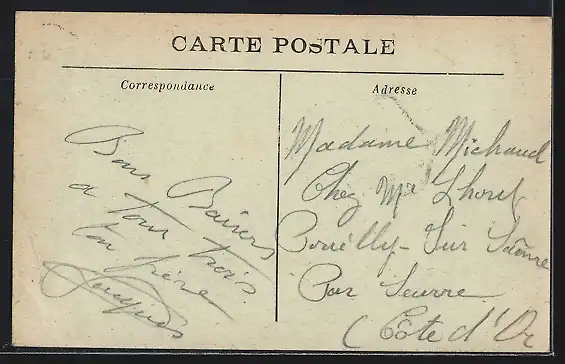 CARTE POSTALE
Correspondance
Bons Baisers
a tous trois
ton frère
Jacques
Adresse
Madame Michaud
Chez Mr
Pouilly-Sur Saône
Par Seurre
(Côte d'Or